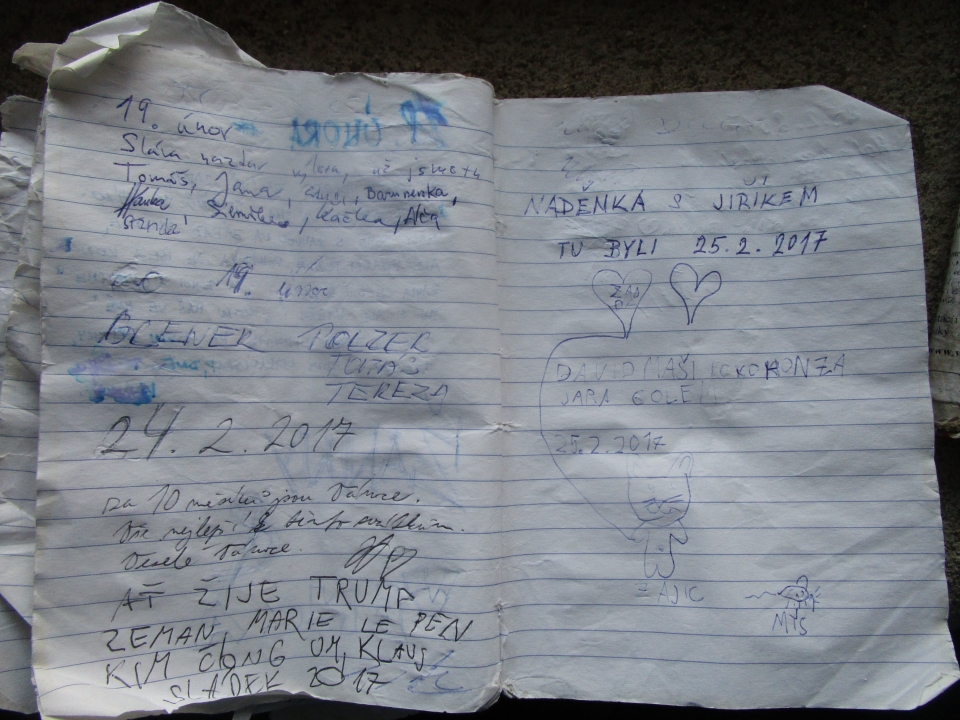 19. únor
Sláva nazdar výletu, už jsme tu
Tomáš, Jana, Barunenka,
Hanka, Kačka,
Standa,
19. únor
POLZER
TEREZA
24.2.2017
za 10 měsíců jsou Vánoce.
Vše nejlepší k
Veselé Vánoce.
AŤ ŽIJE TRUMP
ZEMAN, MARIE LE PEN
KIM ČONG UN, KLAUS
SLÁDEK 2017
NADĚNKA S JIŘÍKEM
TU BYLI 25.2.2017
DAVID MAŠÍ KOKORONZA
JARA GOLEM
25.2.2017
ZAJÍC
MYŠ